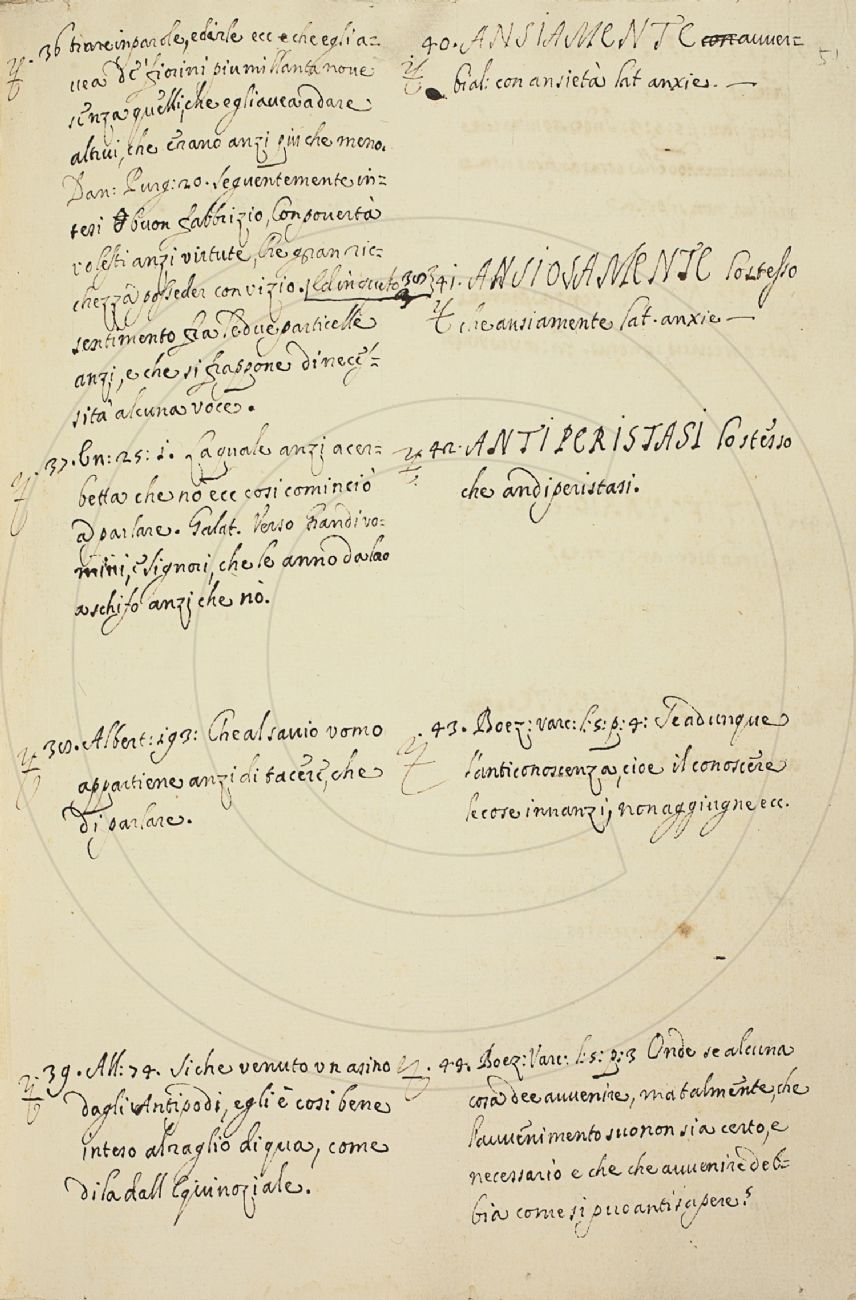 36 tirare in parole, e dirle ecc e che egli a=
vea de' fiorini piu millanta nove
senza quelli, che egli avea a dare
altrui, che erano anzi piu che meno.
Dan: Purg: 20. Seguentemente in=
tesi o buon Fabbrizio, Con povertà
volesti anzi virtute, Che gran ric=
chezza posseder con vizio.
sentimento fra le due particelle
anzi, e che si frappone di neces=
sità alcuna voce.
37. Bn: 25: 1. La quale anzi acer=
betta che nò ecc così cominciò
a parlare. Galat. Verso Grandi vo=
mini, e signori, che le anno da lao
a schifo anzi che nò.
38. Albert: 193: Che al savio vomo
appartiene anzi di tacere, che
di parlare.
39. All: 74. Siche venuto vn asino
dagli Antipodi, egli è così bene
inteso al raglio di qua, come
di la dall Equinoziale.
51
40. ANSIAMENTE con auuer=
bial: con ansietà lat anxie. —
41. ANSIOSAMENTE lo stesso
che ansiamente lat. anxie —
42. ANTIPERISTASI lo stesso
che andiperistasi.
43. Boez: Varc: l: 5: p: 4: Te adunque
l'anticonoscenza, cioe il conoscere
le cose innanzi, non aggiugne ecc.
44. Boez: Varc: l: 5: p: 3 Onde se alcuna
cosa dee auuenire, ma talmente, che
l'auuenimento suo non sia certo, e
necessario e che che auuenire deb=
bia come si puo antisapere?